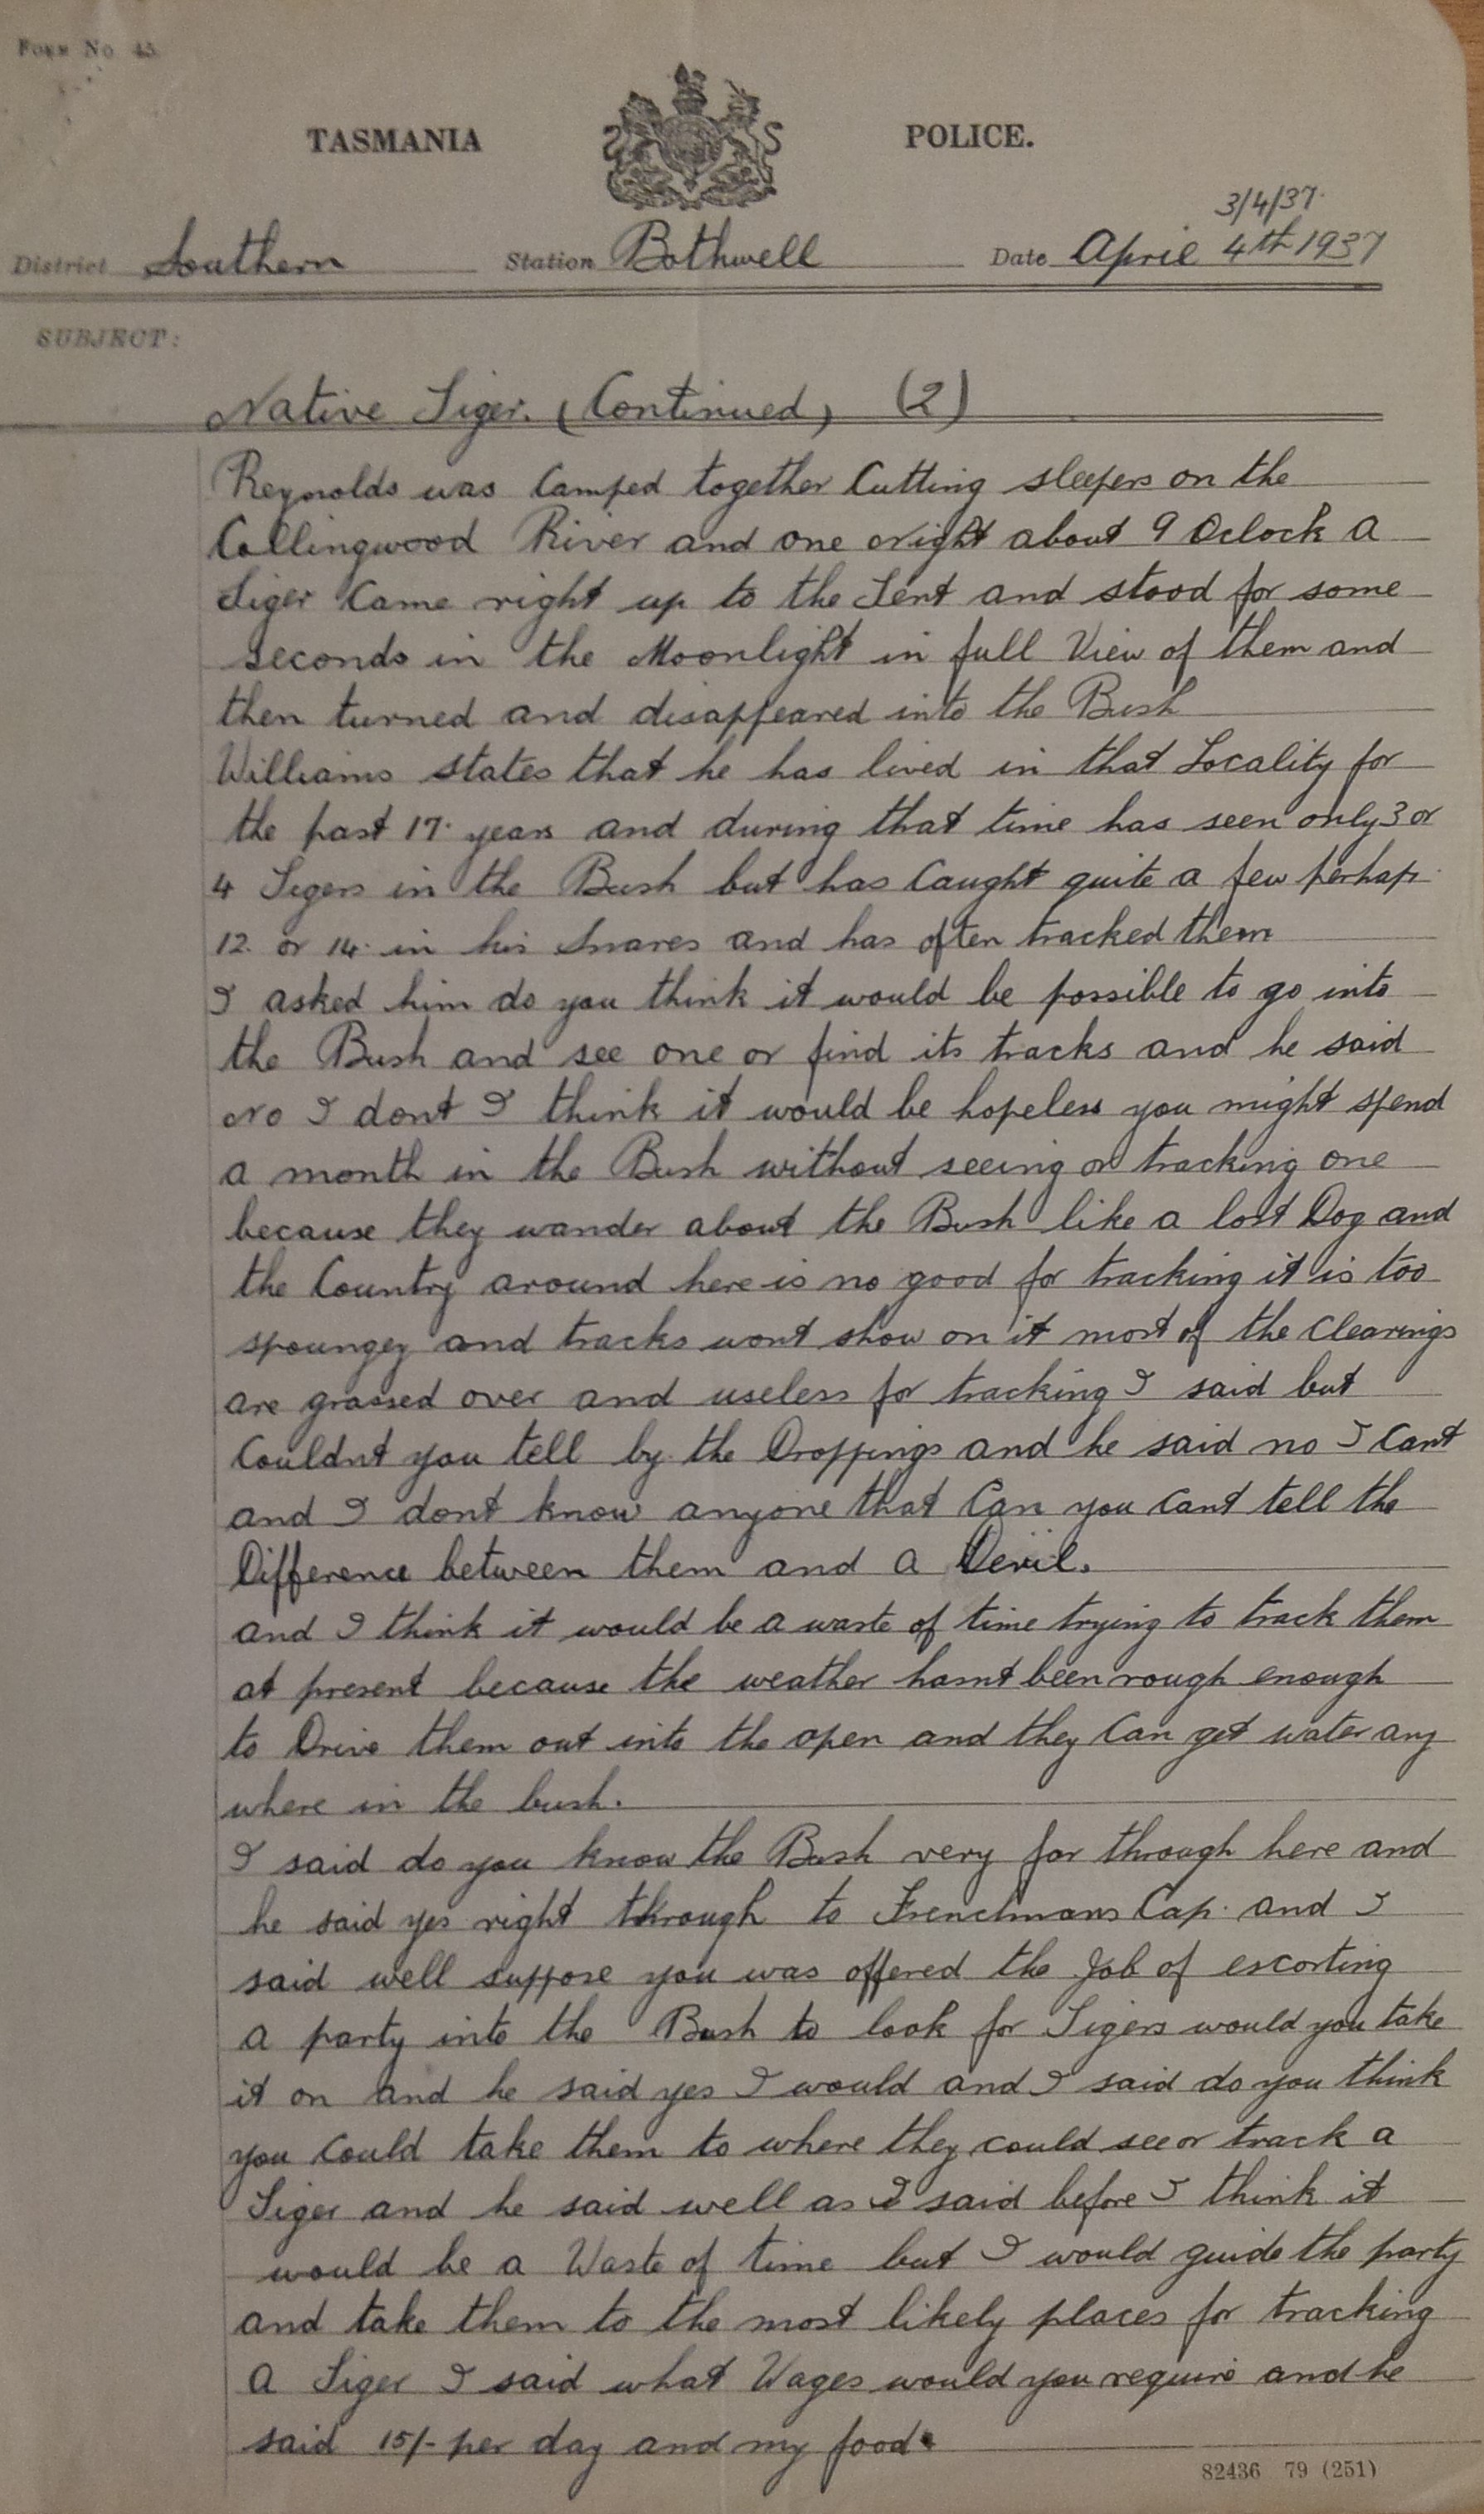 Form No 45.
TASMANIA POLICE.
3/4/37.
District Southern Station Bothwell Date April 4th 1937
SUBJECT:
Native Tiger. (Continued) (2)
Reynolds was Camped together Cutting sleepers on the
Collingwood River and one Night about 9 Oclock A
Tiger Came right up to the Tent and stood for some
seconds in the Moonlight in full View of them and
then turned and disappeared into the Bush
Williams states that he has lived in that Locality for
the past 17. years and during that time has seen only 3 or
4 Tigers in the Bush but has Caught quite a few perhaps
12. or 14. in his Snares and has often tracked them
I asked him do you think it would be possible to go into
the Bush and see one or find its tracks and he said
No I dont I think it would be hopeless you might spend
a month in the Bush without seeing or tracking one
because they wander about the Bush like a lost Dog and
the Country around here is no good for tracking it is too
spoungey and tracks wont show on it most of the Clearings
are grassed over and useless for tracking I said but
Couldnt you tell by the Droppings and he said no I Cant
and I dont know anyone that Can you Cant tell the
Difference between them and a Devil.
and I think it would be a waste of time trying to track them
at present because the weather hasnt been rough enough
to Drive them out into the open and they Can get water any
where in the bush.
I said do you know the Bush very far through here and
he said yes right through to Frenchmans Cap. and I
said well suppose you was offered the Job of escorting
a party into the Bush to look for Tigers would you take
it on and he said yes I would and I said do you think
you Could take them to where they could see or track a
Tiger and he said well as I said before I think it
would be a Waste of time but I would guide the party
and take them to the most likely places for tracking
A Tiger I said what Wages would you require and he
said 15/- per day and my food.
82436 79 (251)